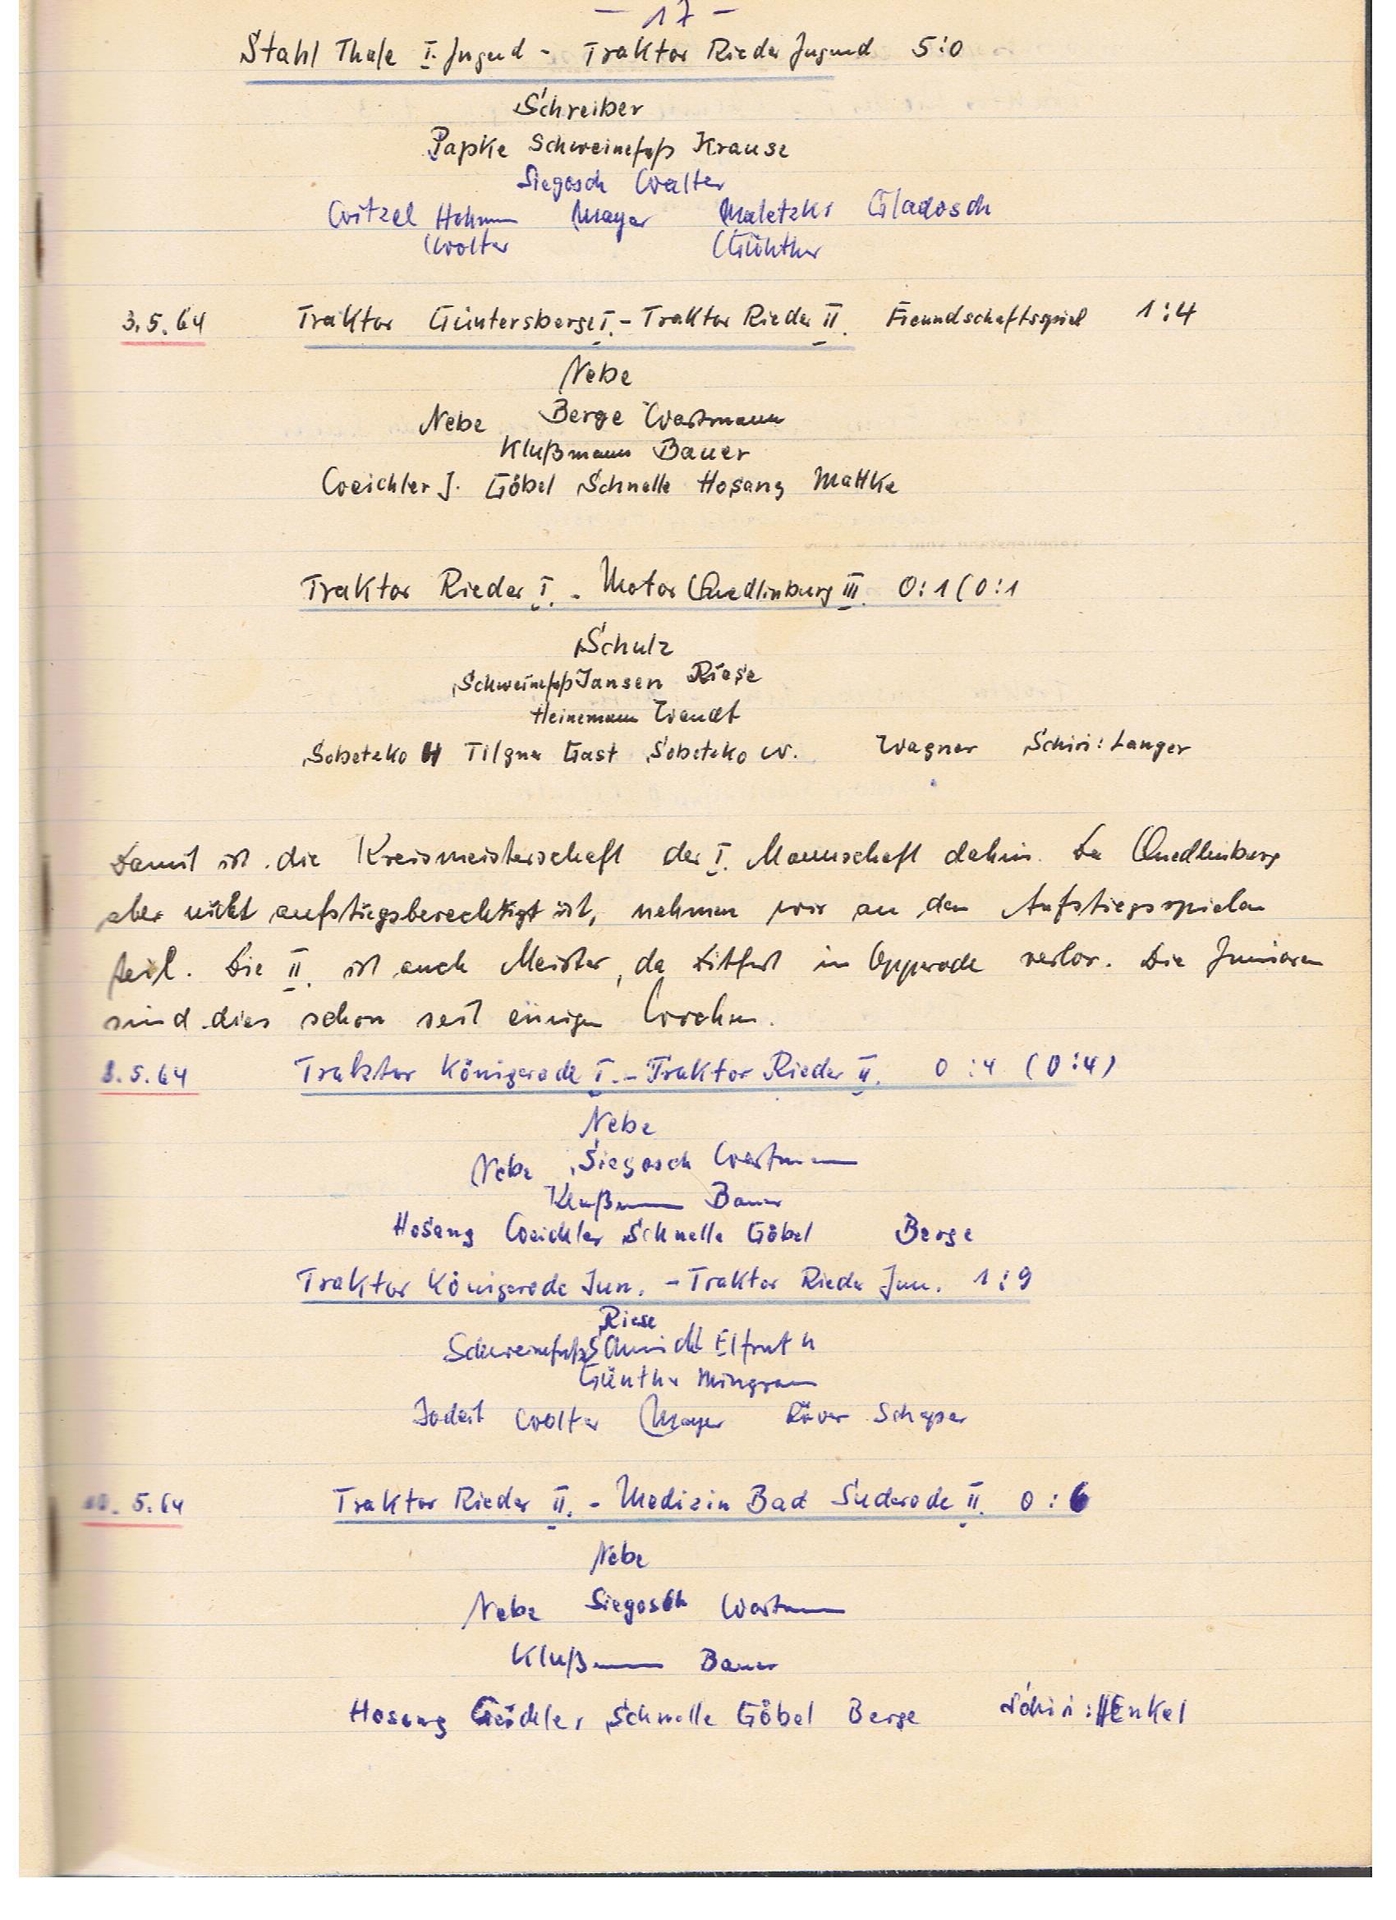 - 17 -
Stahl Thale I. Jugend - Traktor Rieder Jugend 5:0
Schreiber
Papke Schweinefuß Krause
Siegosch Walter
Witzel Hohmann Mayer Maletzki Gladosch
Wolter Günther
3.5.64 Traktor Güntersberge I. - Traktor Rieder II. Freundschaftsspiel 1:4
Nebe
Nebe Berge Wartmann
Klußmann Bauer
Weichler J. Göbel Schnelle Hosang Mattke
Traktor Rieder I. - Motor Quedlinburg III. 0:1 (0:1
Schulz
Schweinefuß Jansen Riese
Heinemann Wendt
Sobetzko H Tilgner Gast Sobetzko W. Wagner Schiri: Langer
Damit ist die Kreismeisterschaft der I. Mannschaft dahin. Da Quedlinburg
aber nicht aufstiegsberechtigt ist, nehmen wir an den Aufstiegsspielen
teil. Die II. ist auch Meister, da Ditfurt in Opperode verlor. Die Junioren
sind dies schon seit einigen Wochen.
8.5.64 Traktor Königerode I. - Traktor Rieder II. 0:4 (0:4)
Nebe
Nebe Siegosch Wartmann
Klußmann Bauer
Hosang Weichler Schnelle Göbel Berge
Traktor Königerode Jun. - Traktor Rieder Jun. 1:9
Riese
Schweinefuß Schmidt Elfruth
Günther Mingram
Jodeit Wolter Mayer Röver Schaper
10. 5.64 Traktor Rieder II. - Medizin Bad Suderode II. 0:6
Nebe
Nebe Siegosch Wartmann
Klußmann Bauer
Hosang Weichler Schnelle Göbel Berge Schiri: Henkel